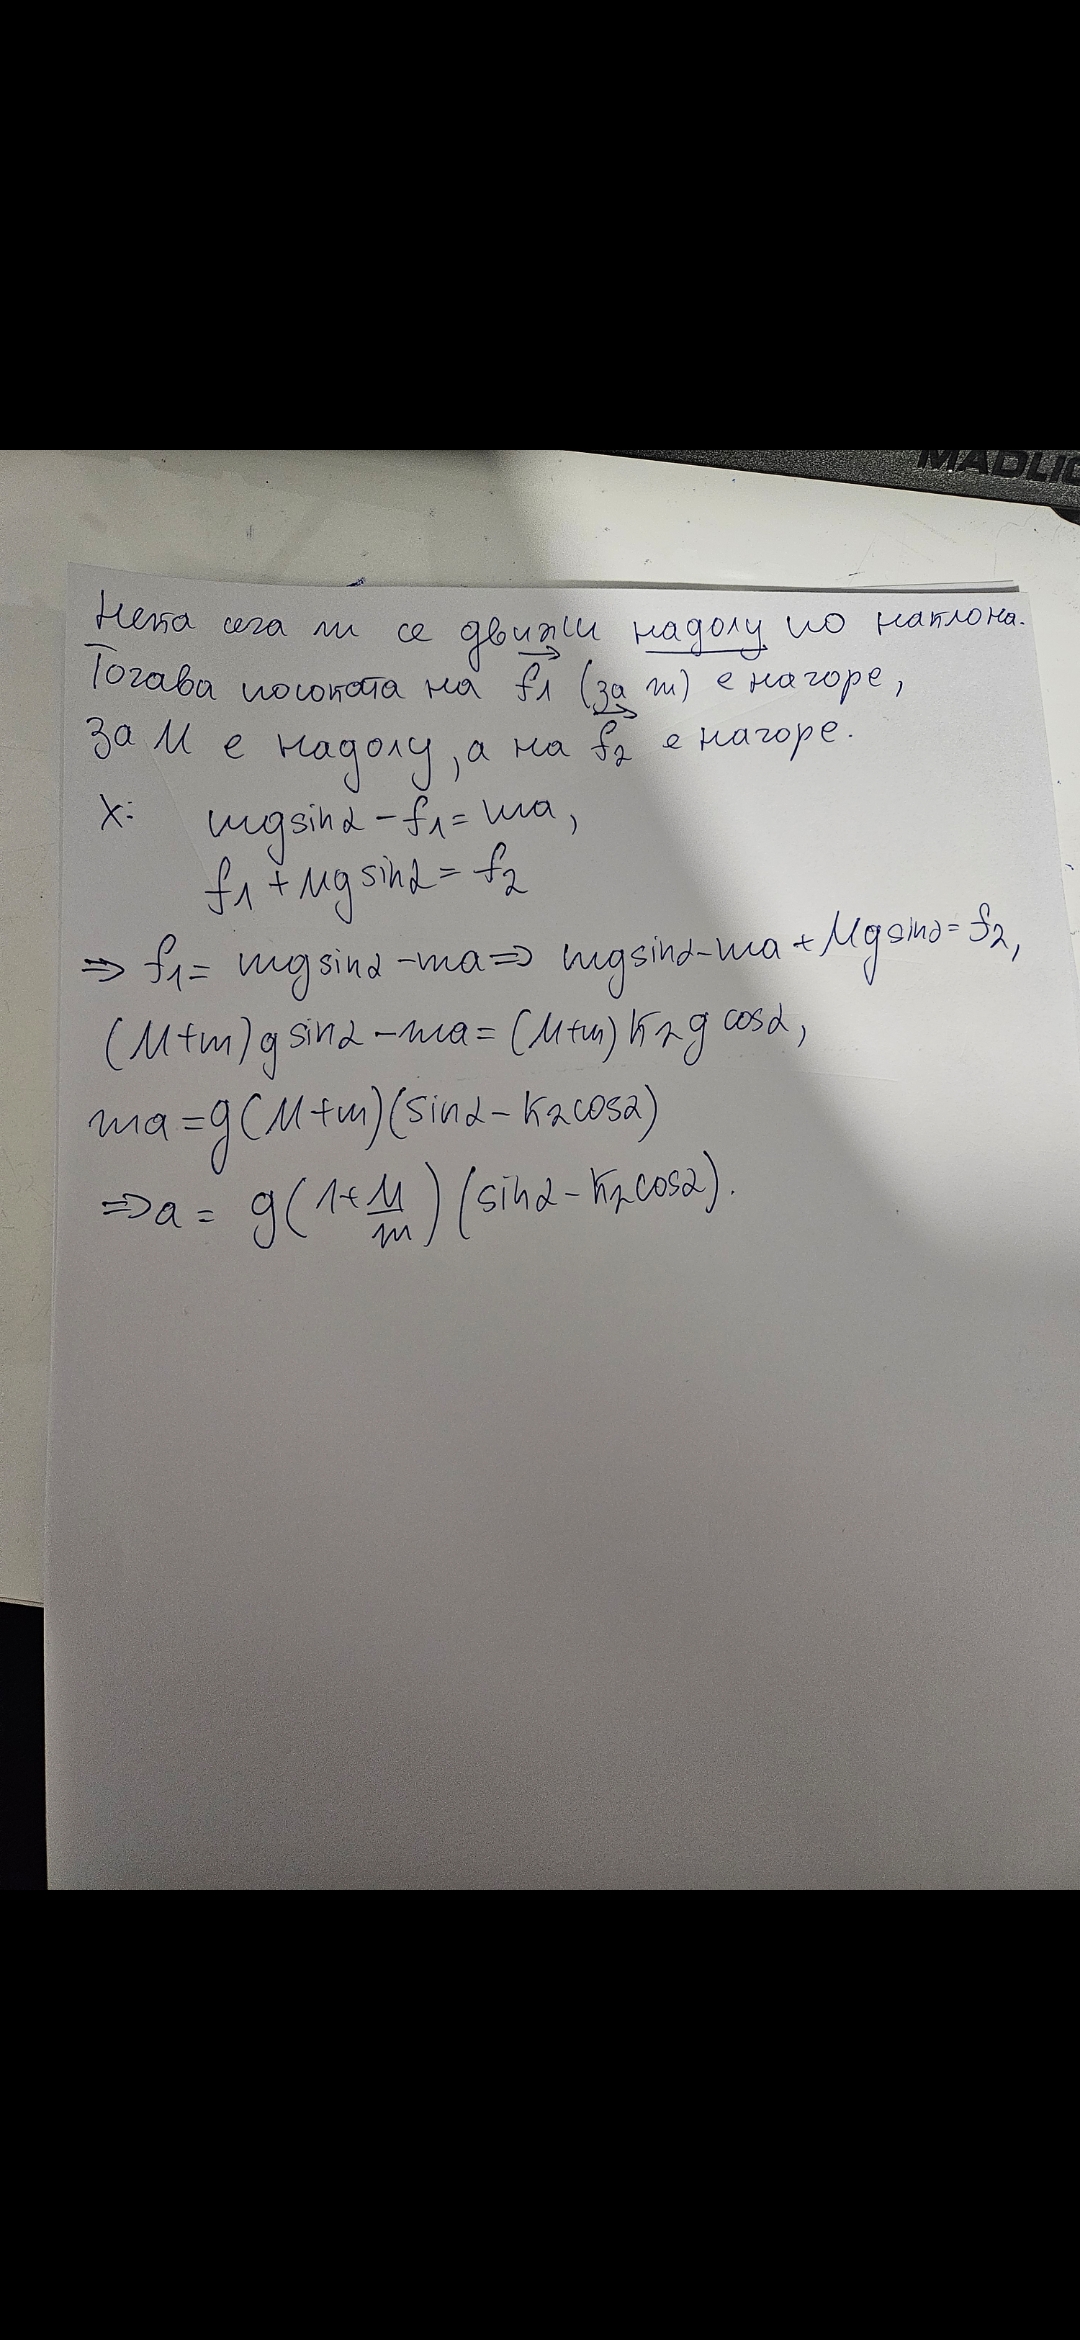 MADLIO
Нека сега m се движи надолу по наклона.
Тогава посоката на f₁ (за m) е нагоре,
за M е надолу, а на f₂ е нагоре.
X: mgsinα - f₁ = ma,
f₁ + Mgsinα = f₂
⇒ f₁ = mgsinα - ma ⇒ mgsinα - ma + Mgsinα = f₂,
(M+m)gsinα - ma = (M+m)k₂gcosα,
ma = g(M+m)(sinα - k₂cosα)
⇒ a = g(1+M/m)(sinα - k₂cosα).